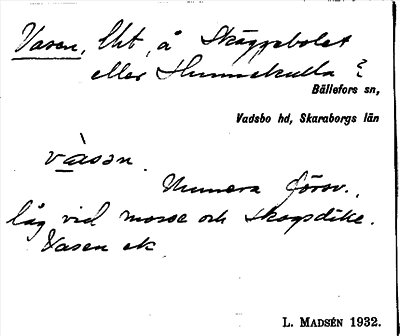 Vasen, lht, å Skäggebolet
eller Hunnekulla?
Bällefors sn,
Vadsbo hd, Skaraborgs län
vàsən.
Numera försv.,
låg vid mosse och skogsdike.
Vasen ek
L. MADSÉN 1932.